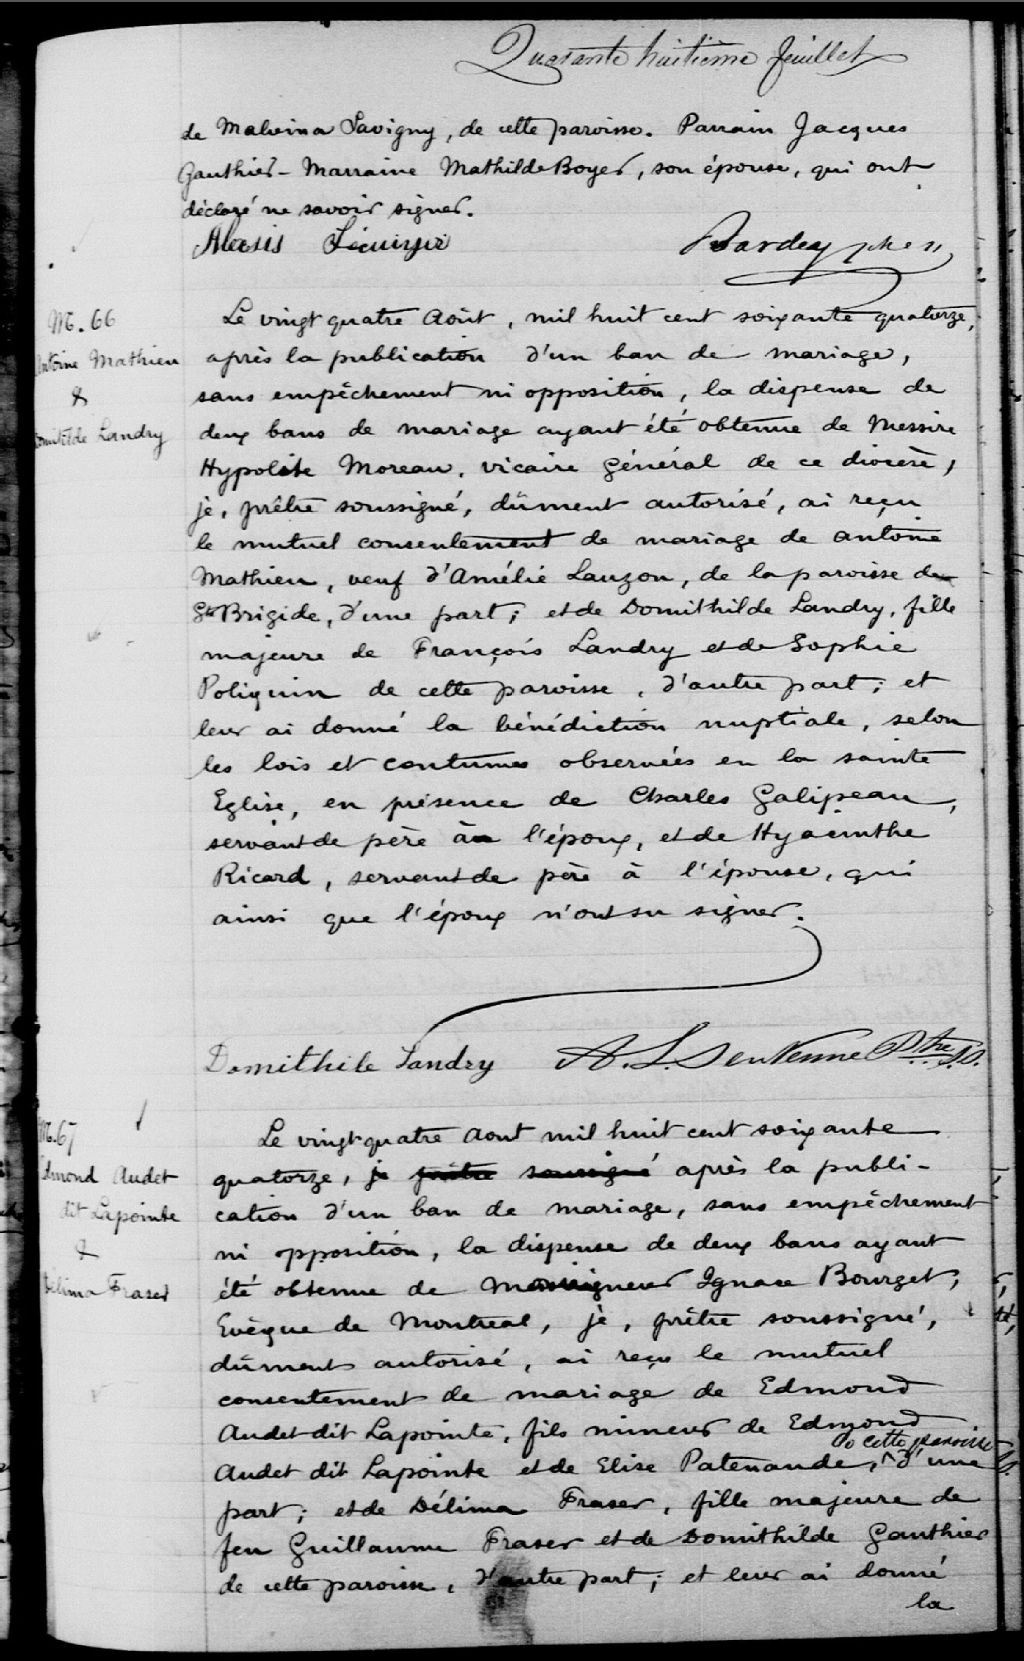 Quarante huitième feuillet
de Malvina Savigny, de cette paroisse. Parrain Jacques
Gauthier - Marraine Mathilde Boyer, son épouse, qui ont
déclaré ne savoir signer.
Alexis
M. 66
Antoine Mathieu
&
Domitilde Landry
Le vingt quatre Août, mil huit cent soixante quatorze,
après la publication d'un ban de mariage,
sans empêchement ni opposition, la dispense de
deux bans de mariage ayant été obtenue de Messire
Hypolite Moreau, vicaire général de ce diocèse,
je, prêtre soussigné, dûment autorisé, ai reçu
le mutuel consentement de mariage de Antoine
Mathieu, veuf d'Amélie Lauzon, de la paroisse de
Ste Brigide, d'une part; et de Domithilde Landry, fille
majeure de François Landry et de Sophie
Poliquin de cette paroisse, d'autre part; et
leur ai donné la bénédiction nuptiale, selon
les lois et coutumes observées en la sainte
Eglise, en présence de Charles Galipeau,
servant de père à l'époux, et de Hyacinthe
Ricard, servant de père à l'épouse, qui
ainsi que l'époux n'ont su signer.
Domithile Landry A. L. Sentenne Ptre S.S.
M. 67
Edmond Audet
dit Lapointe
&
Délima Fraser
Le vingt quatre Aout mil huit cent soixante
quatorze, je prêtre soussigné après la publi-
cation d'un ban de mariage, sans empêchement
ni opposition, la dispense de deux bans ayant
été obtenue de Monseigneur Ignace Bourget,
Evèque de Montreal, je, prêtre soussigné,
dûment autorisé, ai reçu le mutuel
consentement de mariage de Edmond
Audet dit Lapointe, fils mineur de Edmond
de cette paroisse
Audet dit Lapointe et de Elise Patenaude, d'une
part; et de Délima Fraser, fille majeure de
feu Guillaume Fraser et de Domithilde Gauthier
de cette paroisse, d'autre part; et leur ai donné
la